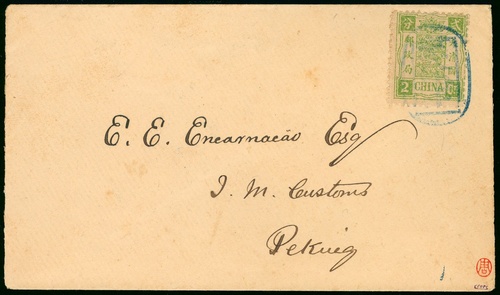 2
CHINA
E. E. Encarnação Esq
I. M. Customs
Peking